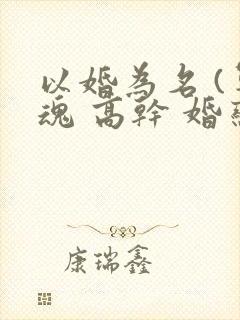 以婚為名(
魂 高幹 婚
康瑞鑫